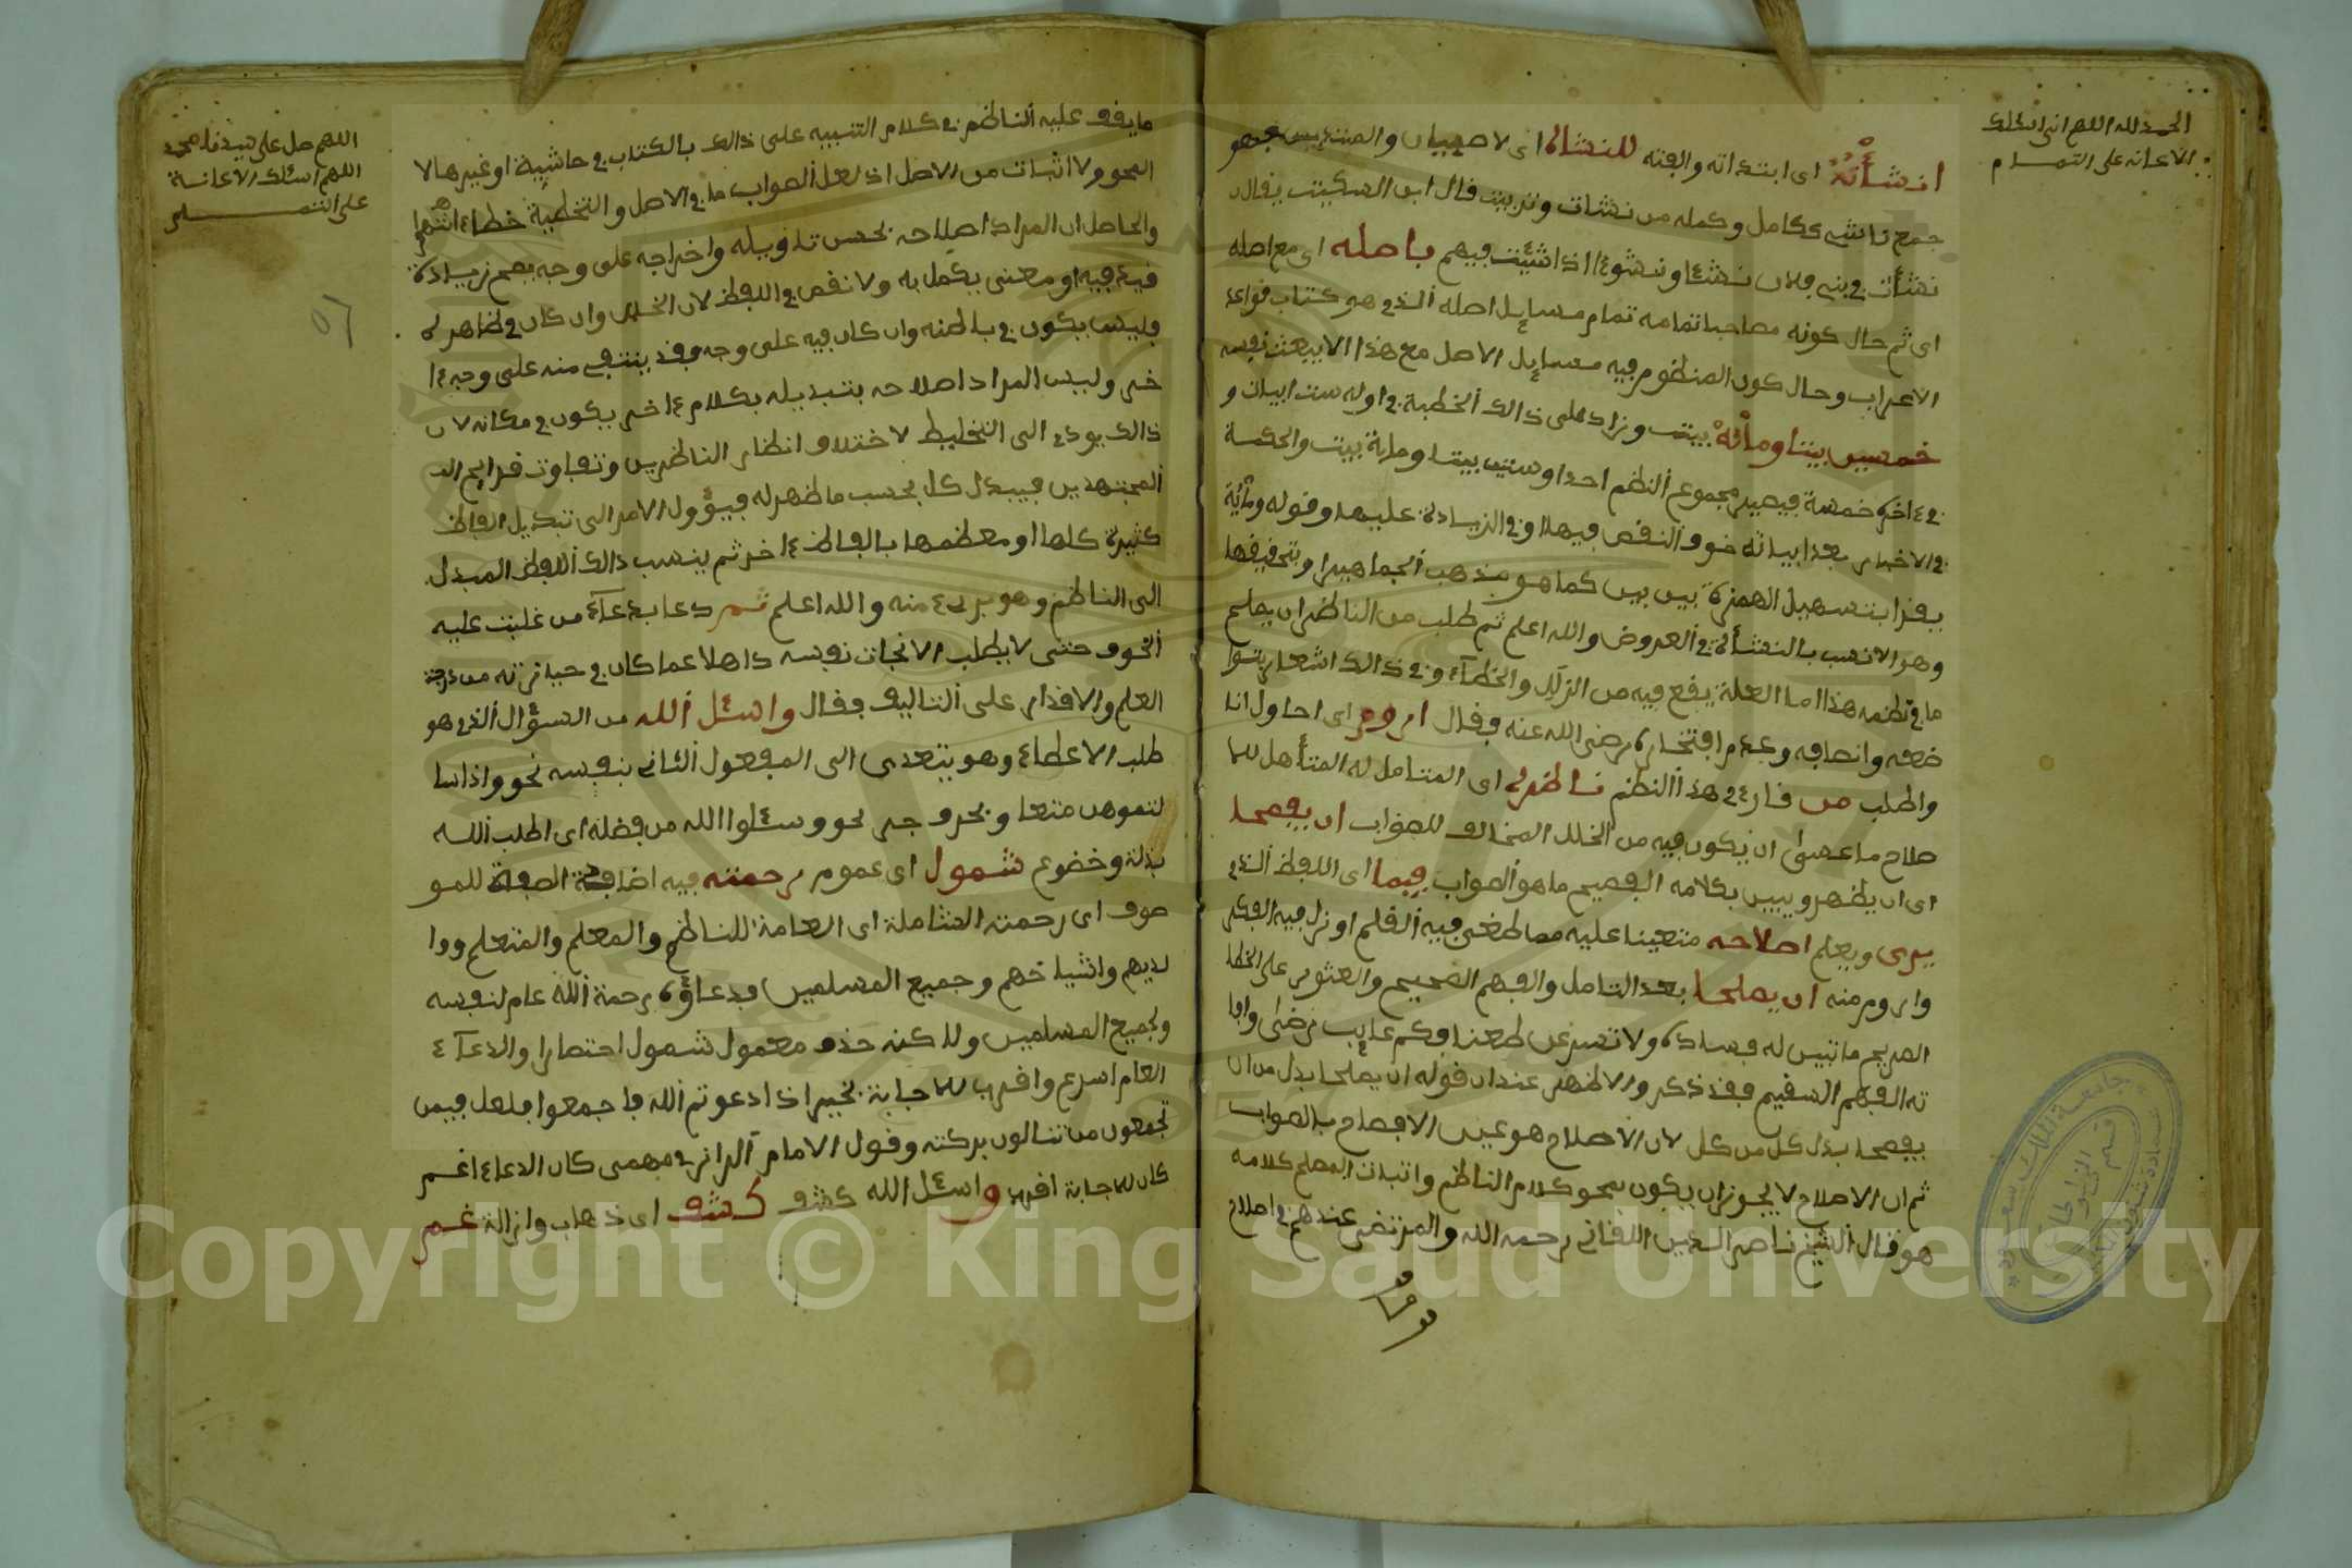 الحمد لله اللهم اني اسئلك
الاعانة على التمام
انشأته اى ابتداته والفته للنشاة اى لاصبيان والمبتديين فهو
جمع ناشى ككامل وكمله من نشات وتربيت قال ابن السكيت يقال
نشأت في بني فلان نشئا ونشوءا اذا شبت فيهم باصله اى مع اصله
اى ثم حال كونه مصاحبا تمامه تمام مسايل اصله الذي هو كتاب قواعد
الاعراب وحال كون المنظوم فيه مسايل الاصل مع هذا الابيعث نفسه
خمسين بيتا ومأئة بيت وزاد على ذالك الخطبة في اوله ست ابيات و
في ءاخره خمسة فيصير مجموع النظم احدا وستين بيتا وماية بيت والحكمة
في الاخبار بعد ابياته خوف النقص فيها او في الزيادة عليها وقوله ومأية
يقرا بتسهيل الهمزة بين بين كما هو مذهب الجماهير او بتخفيفها
وهو الانسب بالنشأة في العروض والله اعلم ثم طلب من الناظر ان يصلح
ما في نظمه هذا اما العلة يقع فيه من الزلل والخطاء وفي ذالك اشعار بتوا
ضعه وانصافه وعدم افتخاره رضي الله عنه فقال اروم اى احاول انا
واطلب من قارئ هذا النظم ناظره اى المتامل له المتأهل للا
صلاح ما عسى ان يكون فيه من الخلل المخالف للصواب ان يفصحا
اى ان يظهر ويبين بكلامه الفصيح ما هو الصواب فيما اى اللفظ الذي
يرى ويعلم اصلاحه متعينا عليه مما طغى فيه القلم او زل فيه الفكر
واروم منه ان يصلحا بعد التامل والفهم الصحيح والعثور على الخطا
الصريح ما تبين له فساده ولا تسرعن طعنا فكم عايب رضى وافا
ته الفهم السقيم فقد ذكر والاظهر عند ان قوله ان يصلحا بدل من ان
يفصحا بدل كل من كل لان الاصلاح هو عين الافصاح بالصواب
ثم ان الاصلاح لا يجوز ان يكون بمحو كلام الناظم واثبات المصلح كلامه
هو قال الشيخ ناصر الدين اللقاني رحمه الله والمرتضى عندهم في اصلاح
ما يقف عليه الناظر في كلام التنبيه على ذالك بالكتاب في حاشية او غيرها لا
المحو ولا اثبات من الاصل اذ لعل الصواب ما في الاصل والتخطية خطاء انتهى
والحاصل ان المراد اصلاحه بحسن تاويله واخراجه على وجه يصح بزيادة
فيد فيه او معنى يكمل به ولا نقص في اللفظ لان الخلل وان كان في ظاهره
فليس يكون في باطنه وان كان فيه على وجه وقد ينتفي منه على وجه ءا
خر وليس المراد اصلاحه بتبديله بكلام ءاخر يكون في مكانه لان
ذالك يودى الى التخليط لاختلاف انظار الناظرين وتفاوت قرايح
المجتهدين فيبدل كل بحسب ما ظهر له فيؤول الامر الى تبديل الفاظ
كثيرة كلها او معظمها بالفاظ ءاخر ثم ينسب ذالك اللفظ المبدل
الى الناظم وهو برىء منه والله اعلم ثم دعا بدعاء من غلبت عليه
الخوف حتى لا يطلب الا نجات نفسه ذاهلا عما كان في حيازته من درجة
العلم والاقدار على التاليف فقال واسئل الله من السؤال الذي هو
طلب الاعطاء وهو يتعدى الى المفعول الثاني بنفسه نحو واذا سا
لتموهن متعا وبحرف جر نحو وسئلوا الله من فضله اى اطلب الله
بذلة وخضوع شمول اى عموم رحمته فيه اضافة الصفة للمو
صوف اى رحمته الشاملة اى العامة للناظم والمعلم والمتعلم ووا
لديهم واشياخهم وجميع المسلمين فدعاؤه رحمة الله عام لنفسه
ولجميع المسلمين وللكنه حذف معمول شمول اختصارا والدعاء
العام اسرع واقرب للاجابة لخبر اذا دعوتم الله فاجمعوا فلعل فيمن
تجمعون من تنالون بركته وقول الامام الرازي مهمى كان الدعاء اعم
كان للاجابة اقرب واسئل الله كشف كشف اى ذهاب وازالة غم
اللهم صل على سيدنا محمد
اللهم اسئلك الاعانة
على التمام
٥٦
Copyright © King Saud University